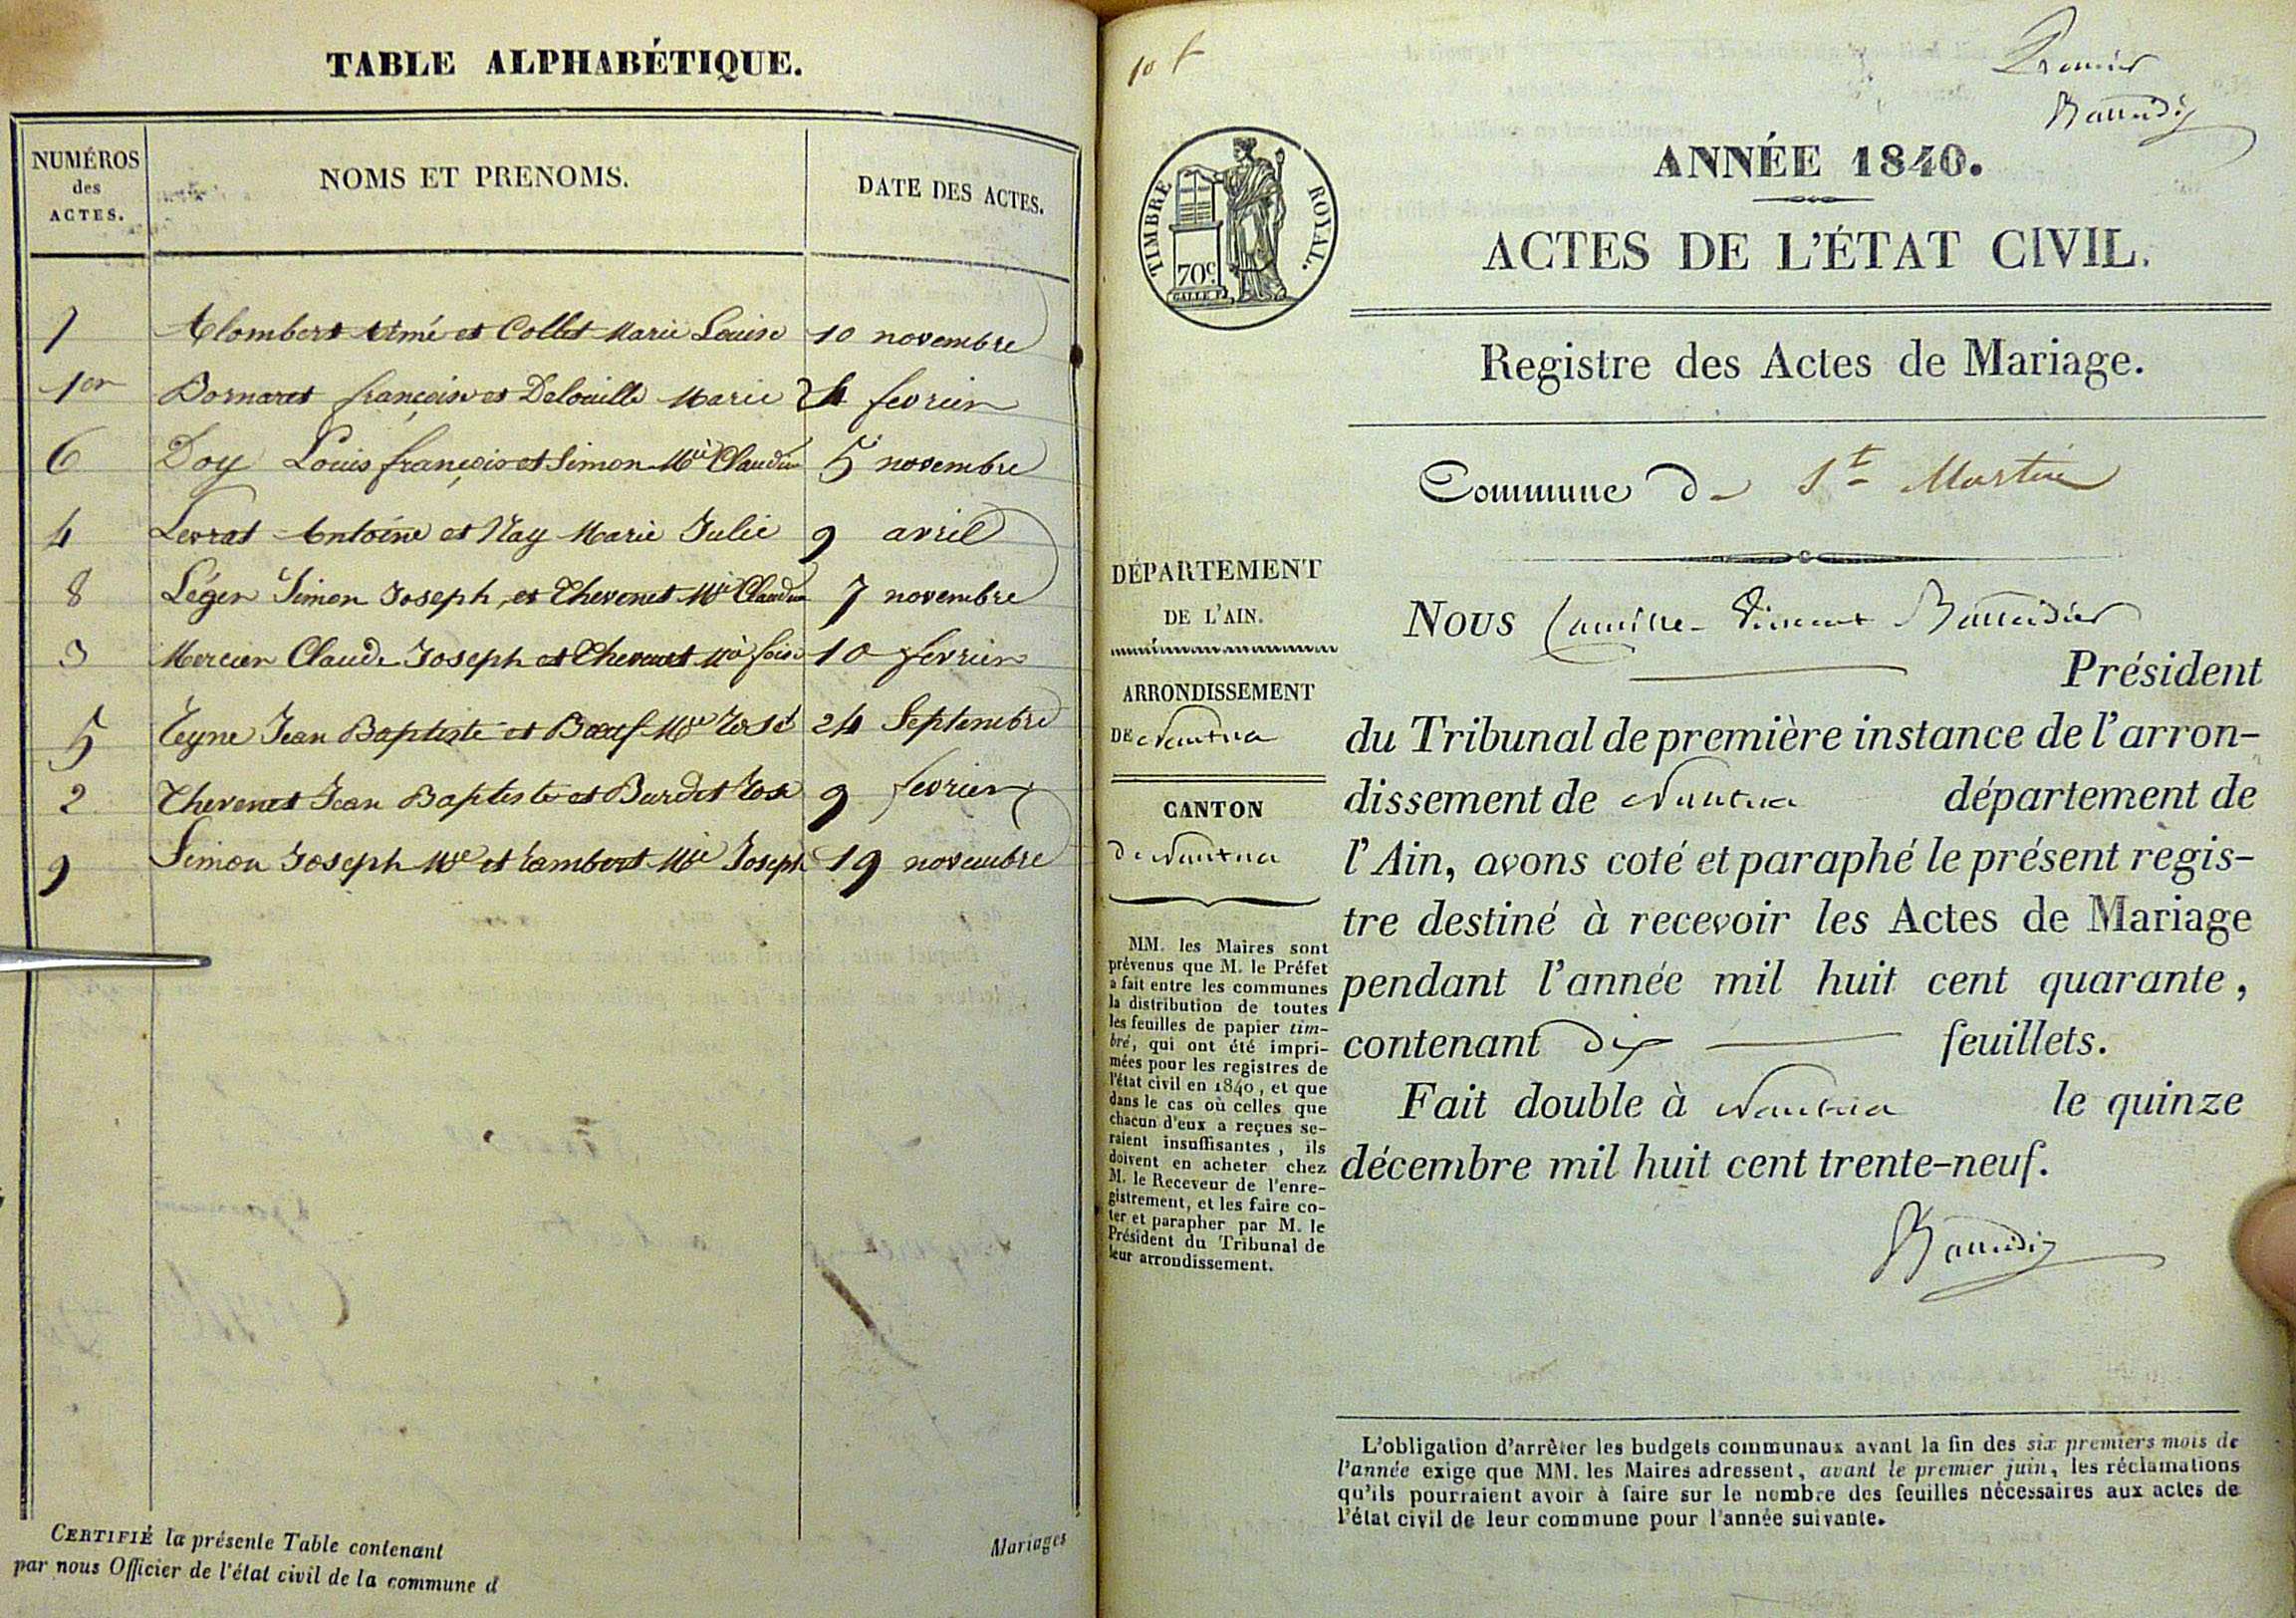 TABLE ALPHABÉTIQUE.
NUMÉROS
des
ACTES.
NOMS ET PRENOMS.
DATE DES ACTES.
7 Alombert Aimé et Collet Marie Louise 10 novembre
1er Bornaret françois et Delouille Marie 24 fevrier
6 Doy Louis françois et Simon Mie Claudine 5 novembre
4 Levrat Antoine et Nay Marie Julie 9 avril
8 Léger Simon Joseph, et Thevenet Mie Claudine 7 novembre
3 Mercier Claude Joseph et Thevenet 10 fevrier
5 Teyne Jean Baptiste et Bœuf Mie 24 Septembre
2 Thevenet Jean Baptiste et Burdet 9 fevrier
9 Simon Joseph Mie et Lambert Mie Joseph 19 novembre
CERTIFIÉ la présente Table contenant
par nous Officier de l'état civil de la commune d
Mariages
10 f
Premier
TIMBRE ROYAL.
70c.
GALLE F.
ANNÉE 1840.
ACTES DE L'ÉTAT CIVIL.
Registre des Actes de Mariage.
Commune de St Martin
DÉPARTEMENT
DE L'AIN.
ARRONDISSEMENT
DE Nantua
CANTON
de Nantua
MM. les Maires sont
prévenus que M. le Préfet
a fait entre les communes
la distribution de toutes
les feuilles de papier tim-
bré, qui ont été impri-
mées pour les registres de
l'état civil en 1840, et que
dans le cas où celles que
chacun d'eux a reçues se-
raient insuffisantes, ils
doivent en acheter chez
M. le Receveur de l'enre-
gistrement, et les faire co-
ter et parapher par M. le
Président du Tribunal de
leur arrondissement.
Nous Camille Vincent
Président
du Tribunal de première instance de l'arron-
dissement de Nantua département de
l'Ain, avons coté et paraphé le présent regis-
tre destiné à recevoir les Actes de Mariage
pendant l'année mil huit cent quarante,
contenant dix feuillets.
Fait double à Nantua le quinze
décembre mil huit cent trente-neuf.
L'obligation d'arrêter les budgets communaux avant la fin des six premiers mois de
l'année exige que MM. les Maires adressent, avant le premier juin, les réclamations
qu'ils pourraient avoir à faire sur le nombre des feuilles nécessaires aux actes de
l'état civil de leur commune pour l'année suivante.